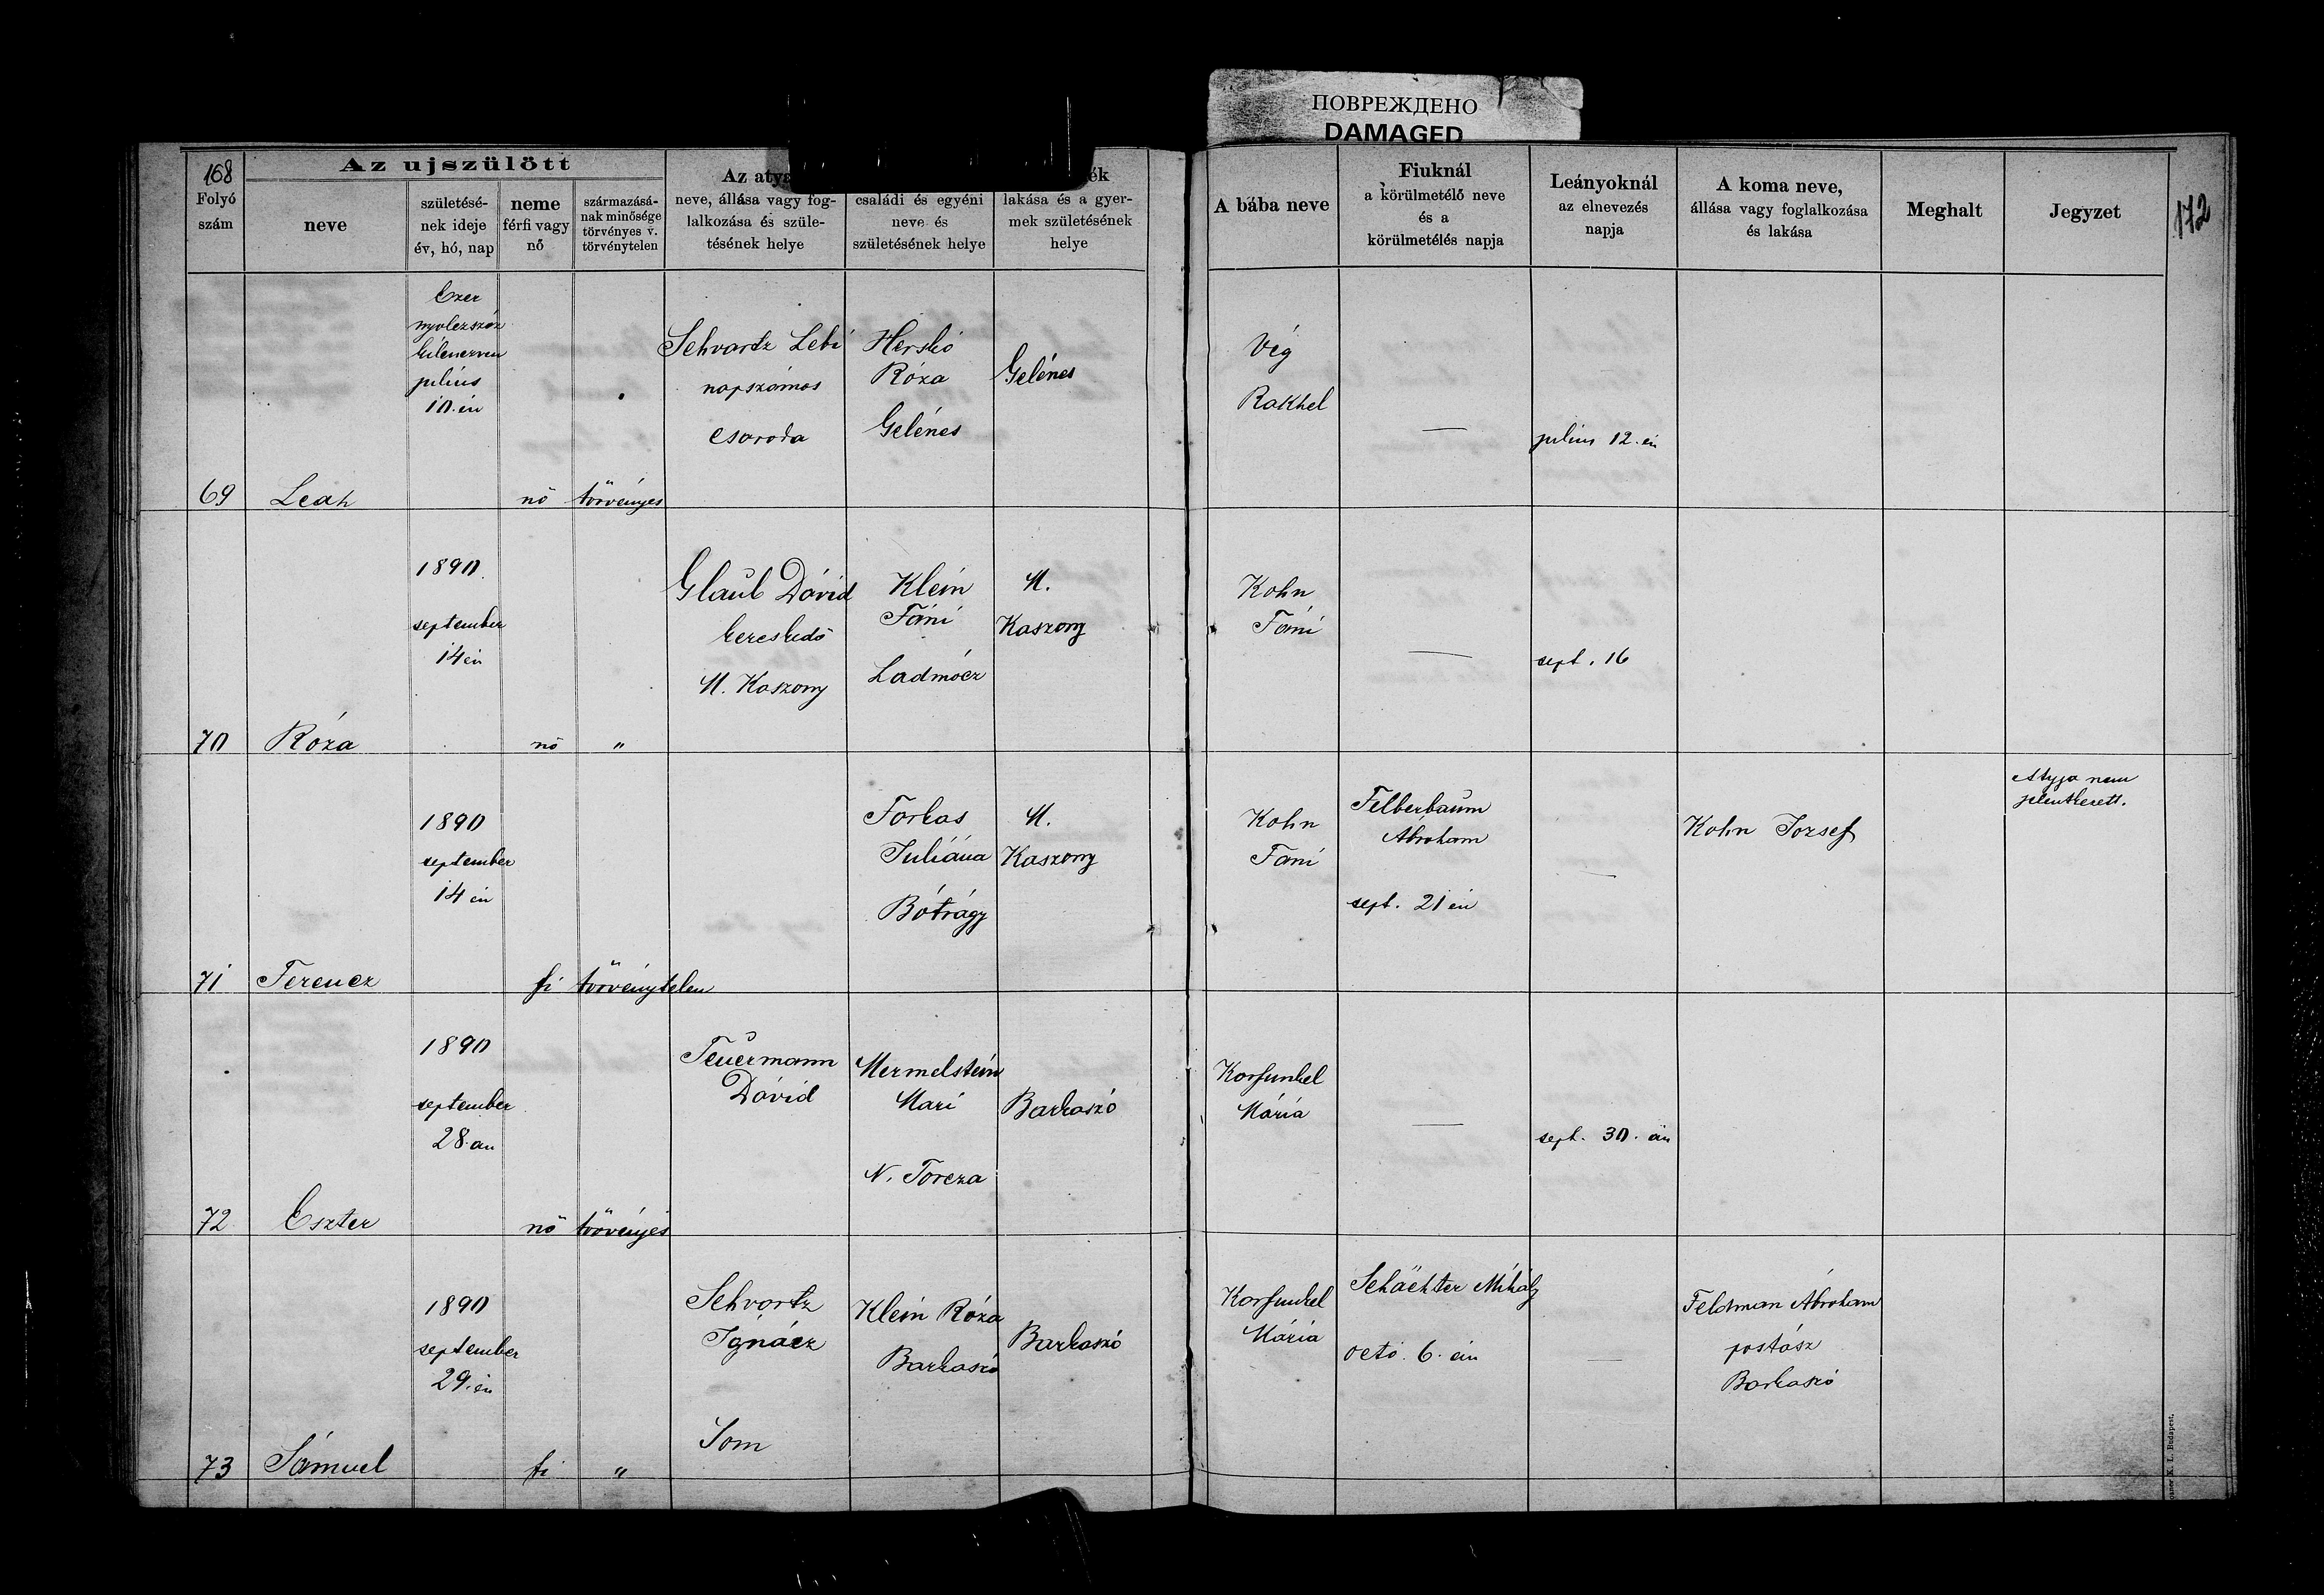 ПОВРЕЖДЕНО
DAMAGED
168
Folyó
szám
Az ujszülött
neve
születésé-
nek ideje
év, hó, nap
neme
férfi vagy
nő
származásá-
nak minősége
törvényes v.
törvénytelen
Az atya
neve, állása vagy fog-
lalkozása és szüle-
tésének helye
családi és egyéni
neve és
születésének helye
lakása és a gyer-
mek születésének
helye
A bába neve
Fiuknál
a körülmetélő neve
és a
körülmetélés napja
Leányoknál
az elnevezés
napja
A koma neve,
állása vagy foglalkozása
és lakása
Meghalt
Jegyzet
172
69
Leah
Ezer
nyolczszáz
kilenczven
július
10. én
nő
törvényes
Schvartz Lebi
napszámos
Csaroda
Herskó
Róza
Gelénes
Gelénes
Vég
Rakhel
—
július 12. én
70
Róza
1890
september
14 én
nő
"
Glaub Dávid
kereskedő
M. Kaszony
Klein
Fáni
Ladmócz
M.
Kaszony
Kohn
Fáni
—
sept. 16
71
Ferencz
1890
september
14 én
fi
törvénytelen
Farkas
Juliána
Bótrágy
M.
Kaszony
Kohn
Fani
Felberbaum
Ábrahám
sept. 21 én
—
Kohn Jozsef
Atyja nem
jelentkezett.
72
Eszter
1890
september
28. án
nő
törvényes
Feuermann
Dávid
Mermelstein
Mari
N. Torcza
Barkaszó
Korfunkel
Mária
—
sept. 30. án
73
Sámuel
1890
september
29. én
fi
"
Schvartz
Ignácz
Som
Klein Róza
Barkaszó
Barkaszó
Korfunkel
Mária
Schächter Mihály
octo. 6. án
—
Feldman Ábrahám
postász
Barkaszó
K. I. Budapest.